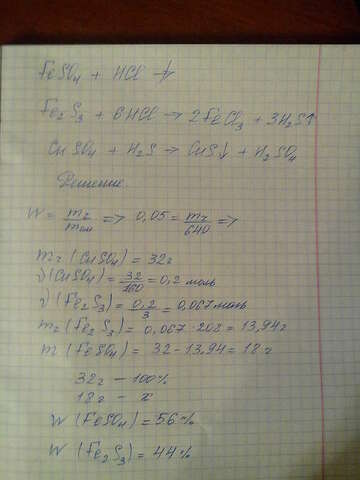 FeSO₄ + HCl ↛
Fe₂S₃ + 6HCl → 2FeCl₃ + 3H₂S↑
CuSO₄ + H₂S → CuS↓ + H₂SO₄
Решение.
W = m₂/m см => 0,05 = m₂/640 =>
m₂ (CuSO₄) = 32г
ν(CuSO₄) = 32/160 = 0,2 моль
ν(Fe₂S₃) = 0,2/3 = 0,067 моль
m₂ (Fe₂S₃) = 0,067 · 208 = 13,94г
m (FeSO₄) = 32 - 13,94 = 18 г
32г — 100%
18г — x
W (FeSO₄) = 56 %
W (Fe₂S₃) = 44 %